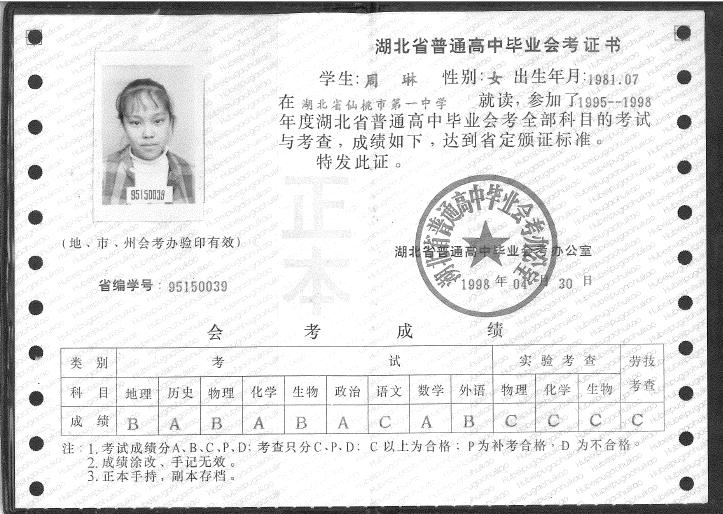 湖北省普通高中毕业会考证书
学生：周 琳 性别：女 出生年月：1981.07
在 湖北省仙桃市第一中学 就读，参加了1995--1998
年度湖北省普通高中毕业会考全部科目的考试
与考查，成绩如下，达到省定颁证标准。
特发此证。
95150039
正本
(地、市、州会考办验印有效)
湖北省普通高中毕业会考办公室
湖北省普通高中毕业会考办公室
1998 年 04 月 30 日
省编学号：95150039
会 考 成 绩
类 别 考 试 实 验 考 查 劳技考查
科 目 地理 历史 物理 化学 生物 政治 语文 数学 外语 物理 化学 生物
成 绩 B A B A B A C A B C C C C
注：1.考试成绩分A、B、C、P、D；考查只分C、P、D；C以上为合格；P为补考合格，D为不合格。
2.成绩涂改、手记无效。
3.正本手持，副本存档。